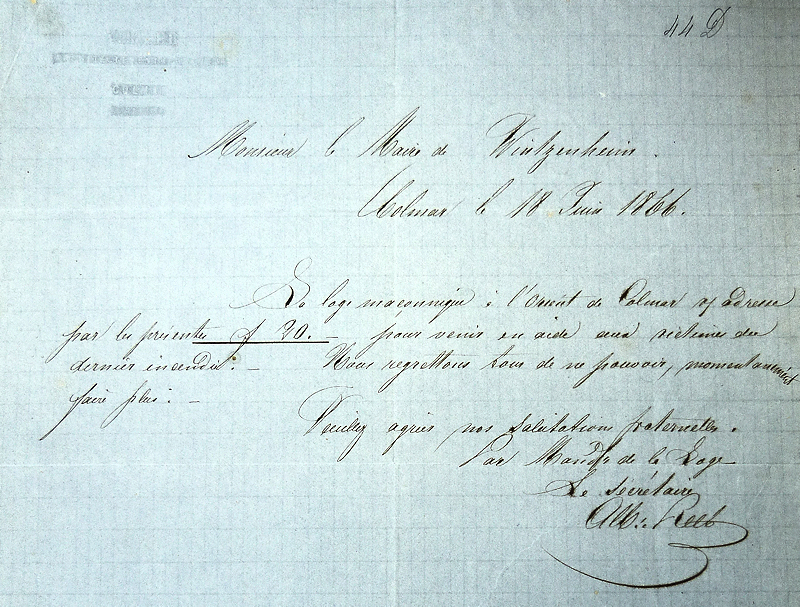 44 D
Monsieur le Maire de Wintzenheim.
Colmar le 18 Juin 1866.
La loge maçonnique à l'Orient de Colmar adresse
par les présentes f 20. — pour venir en aide aux victimes du
dernier incendie. — Nous regrettons tous de ne pouvoir, momentanément
faire plus. —
Veuillez agréer nos salutations fraternelles.
Par Mandt de la Loge
Le secrétaire
Alb. Reeb